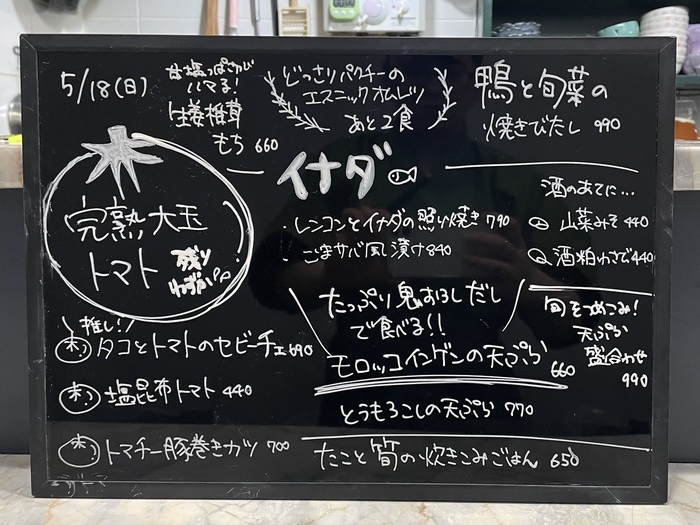 5/18(日)
甘塩っぱさが
ハマる!
生姜椎茸
もち 660
どっさりパクチーの
エスニックオムレツ
あと2食
鴨と旬菜の
焼きびたし 990
完熟大玉
トマト
残り
わずか
イナダ
・レンコンとイナダの照り焼き 790
・ごまサバ風漬け 840
酒のあてに…
山菜みそ 440
酒粕わさび 440
推し!
タコとトマトのセビーチェ 690
塩昆布トマト 440
トマチー豚巻きカツ 700
たっぷり鬼おろしだし
で食べる!!
モロッコインゲンの天ぷら 660
とうもろこしの天ぷら 770
旬をつめこみ!
天ぷら
盛合わせ
990
たこと筍の炊きこみごはん 650